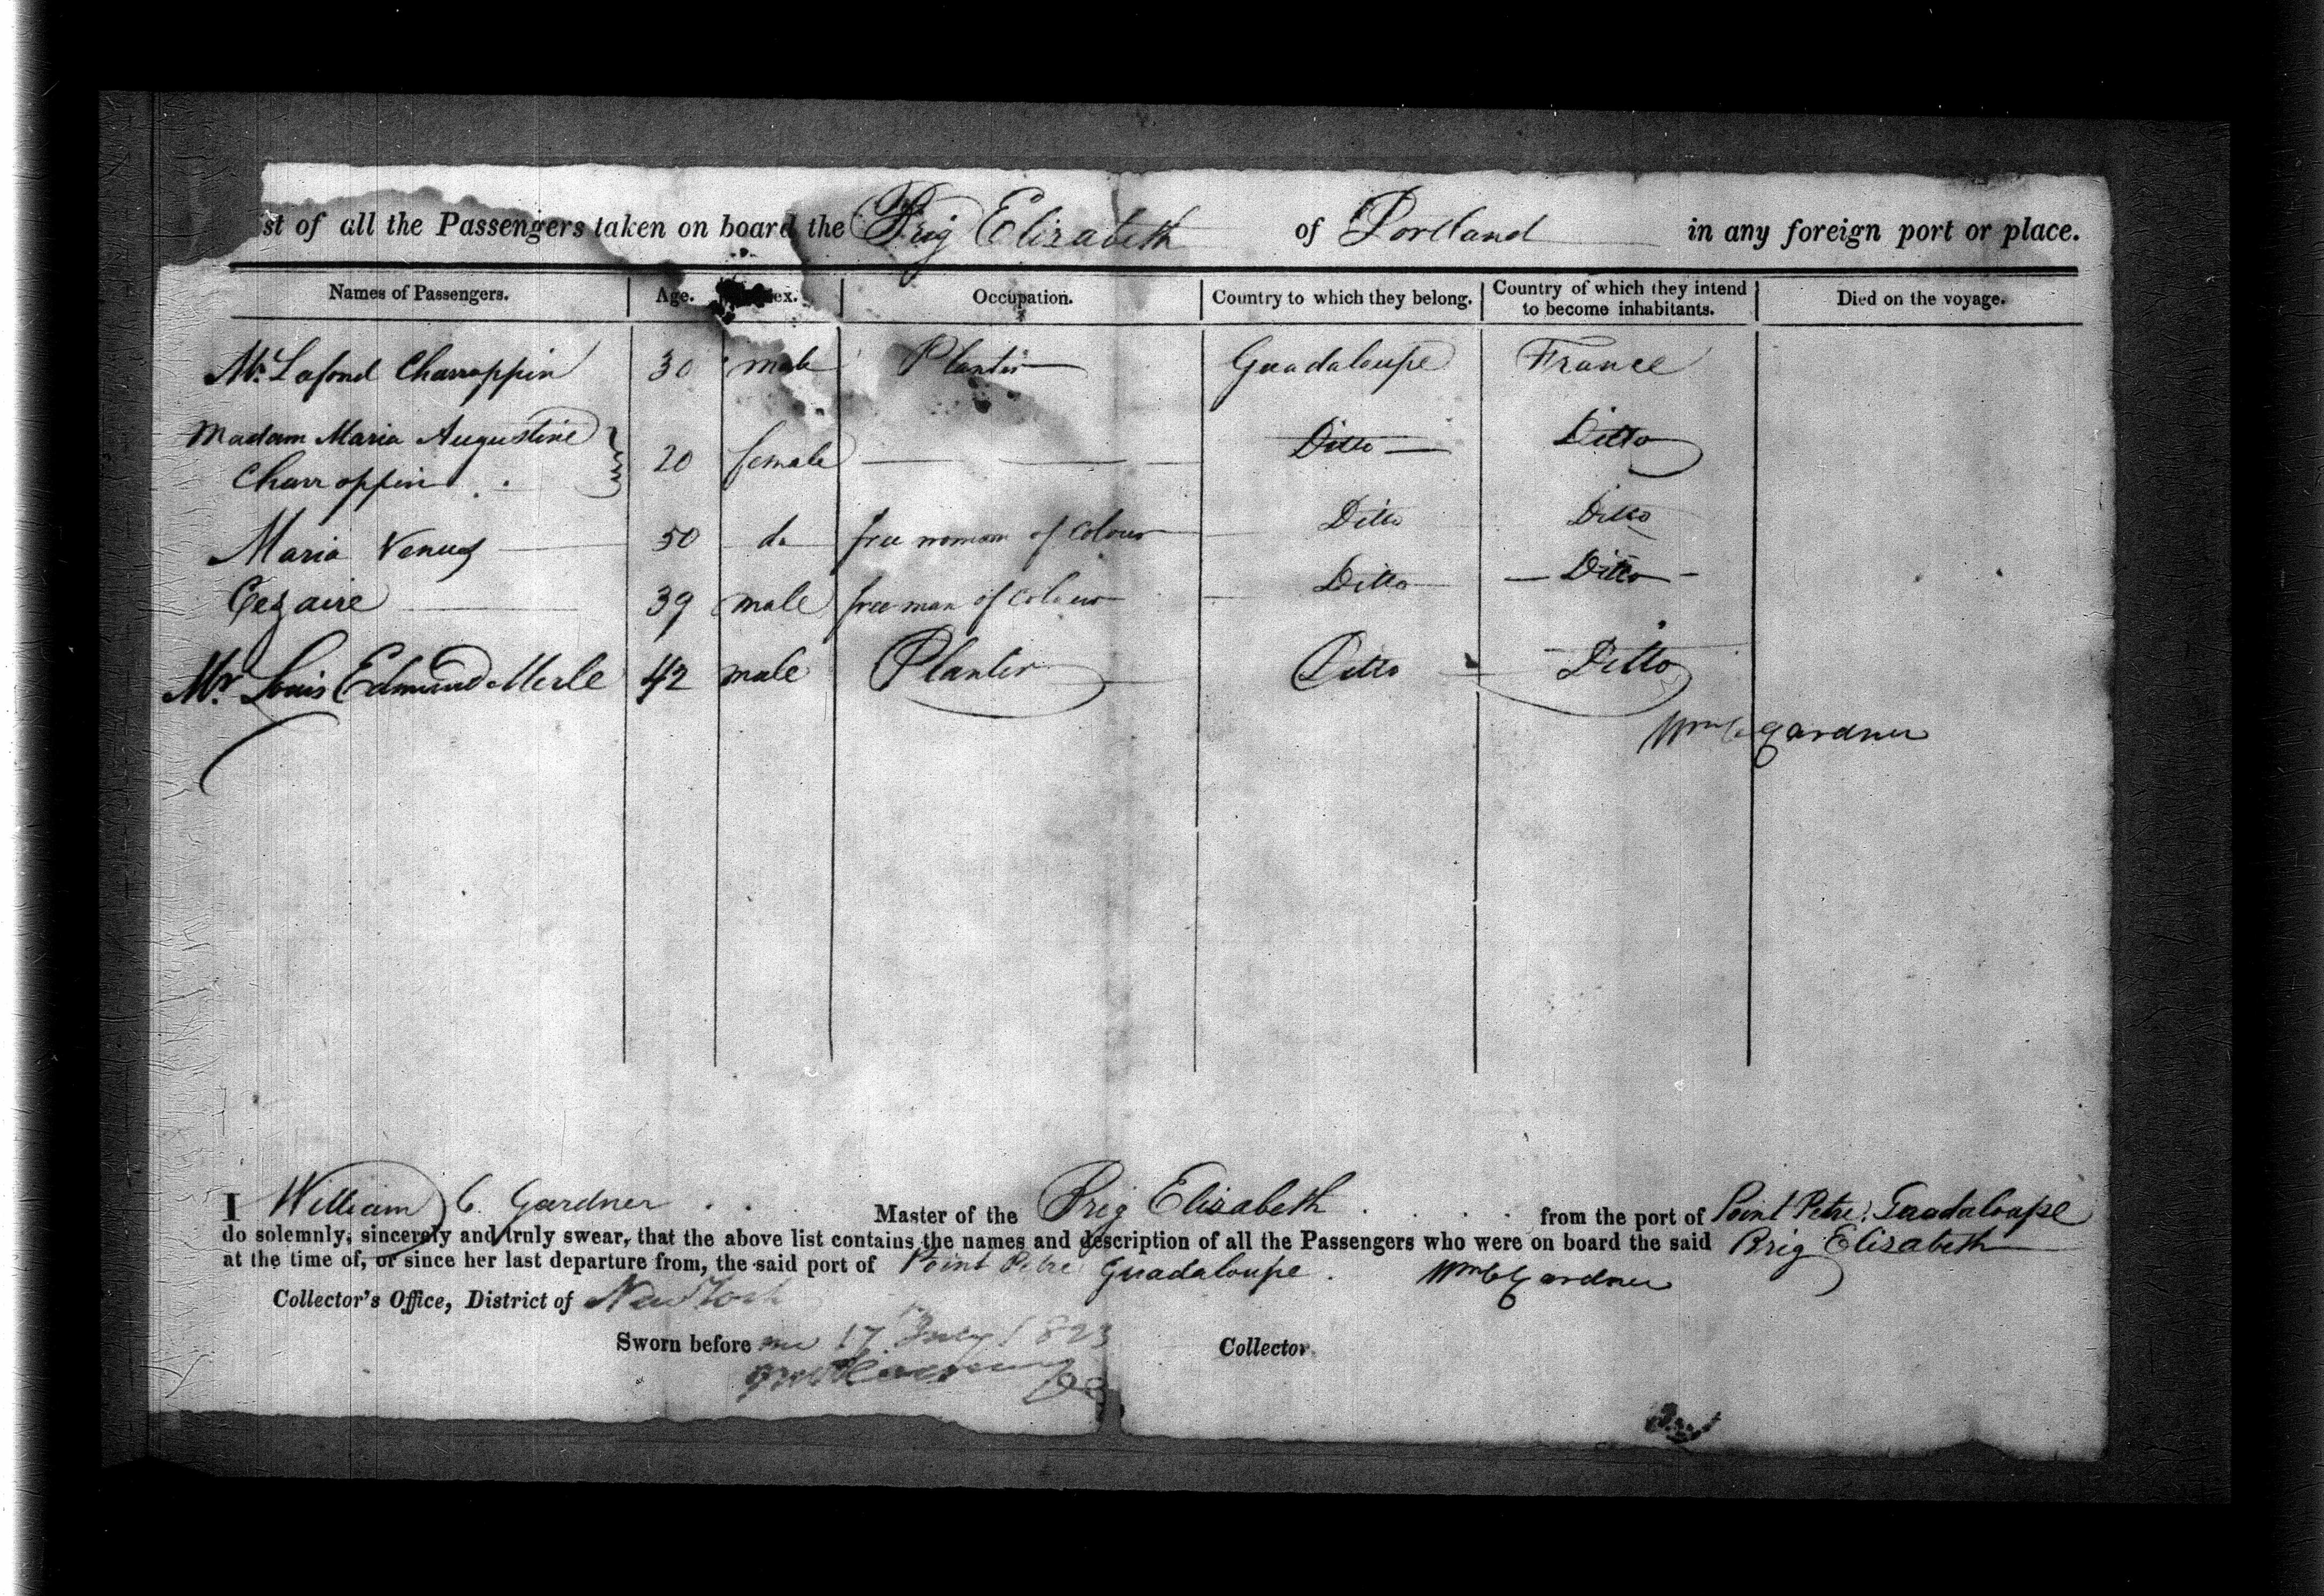 st of all the Passengers taken on board the Brig Elizabeth of Portland in any foreign port or place.
Names of Passengers. Age. ex. Occupation. Country to which they belong. Country of which they intend to become inhabitants. Died on the voyage.
Mr. Lafond Charroppin 30 male Planter Guadaloupe France
Madam Maria Augustine
Charroppin 20 female Ditto Ditto
Maria Venus 50 do free woman of Colour Ditto Ditto
Cezaire 39 male free man of Colour Ditto Ditto
Mr. Louis Edmund Merle 42 male Planter Ditto Ditto
Wm C Gardner
I William C. Gardner Master of the Brig Elizabeth from the port of Point Petre, Guadaloupe
do solemnly, sincerely and truly swear, that the above list contains the names and description of all the Passengers who were on board the said Brig Elizabeth
at the time of, or since her last departure from, the said port of Point Petre Guadaloupe. Wm C Gardner
Collector's Office, District of New York
Sworn before me 17 July 1823 Collector.